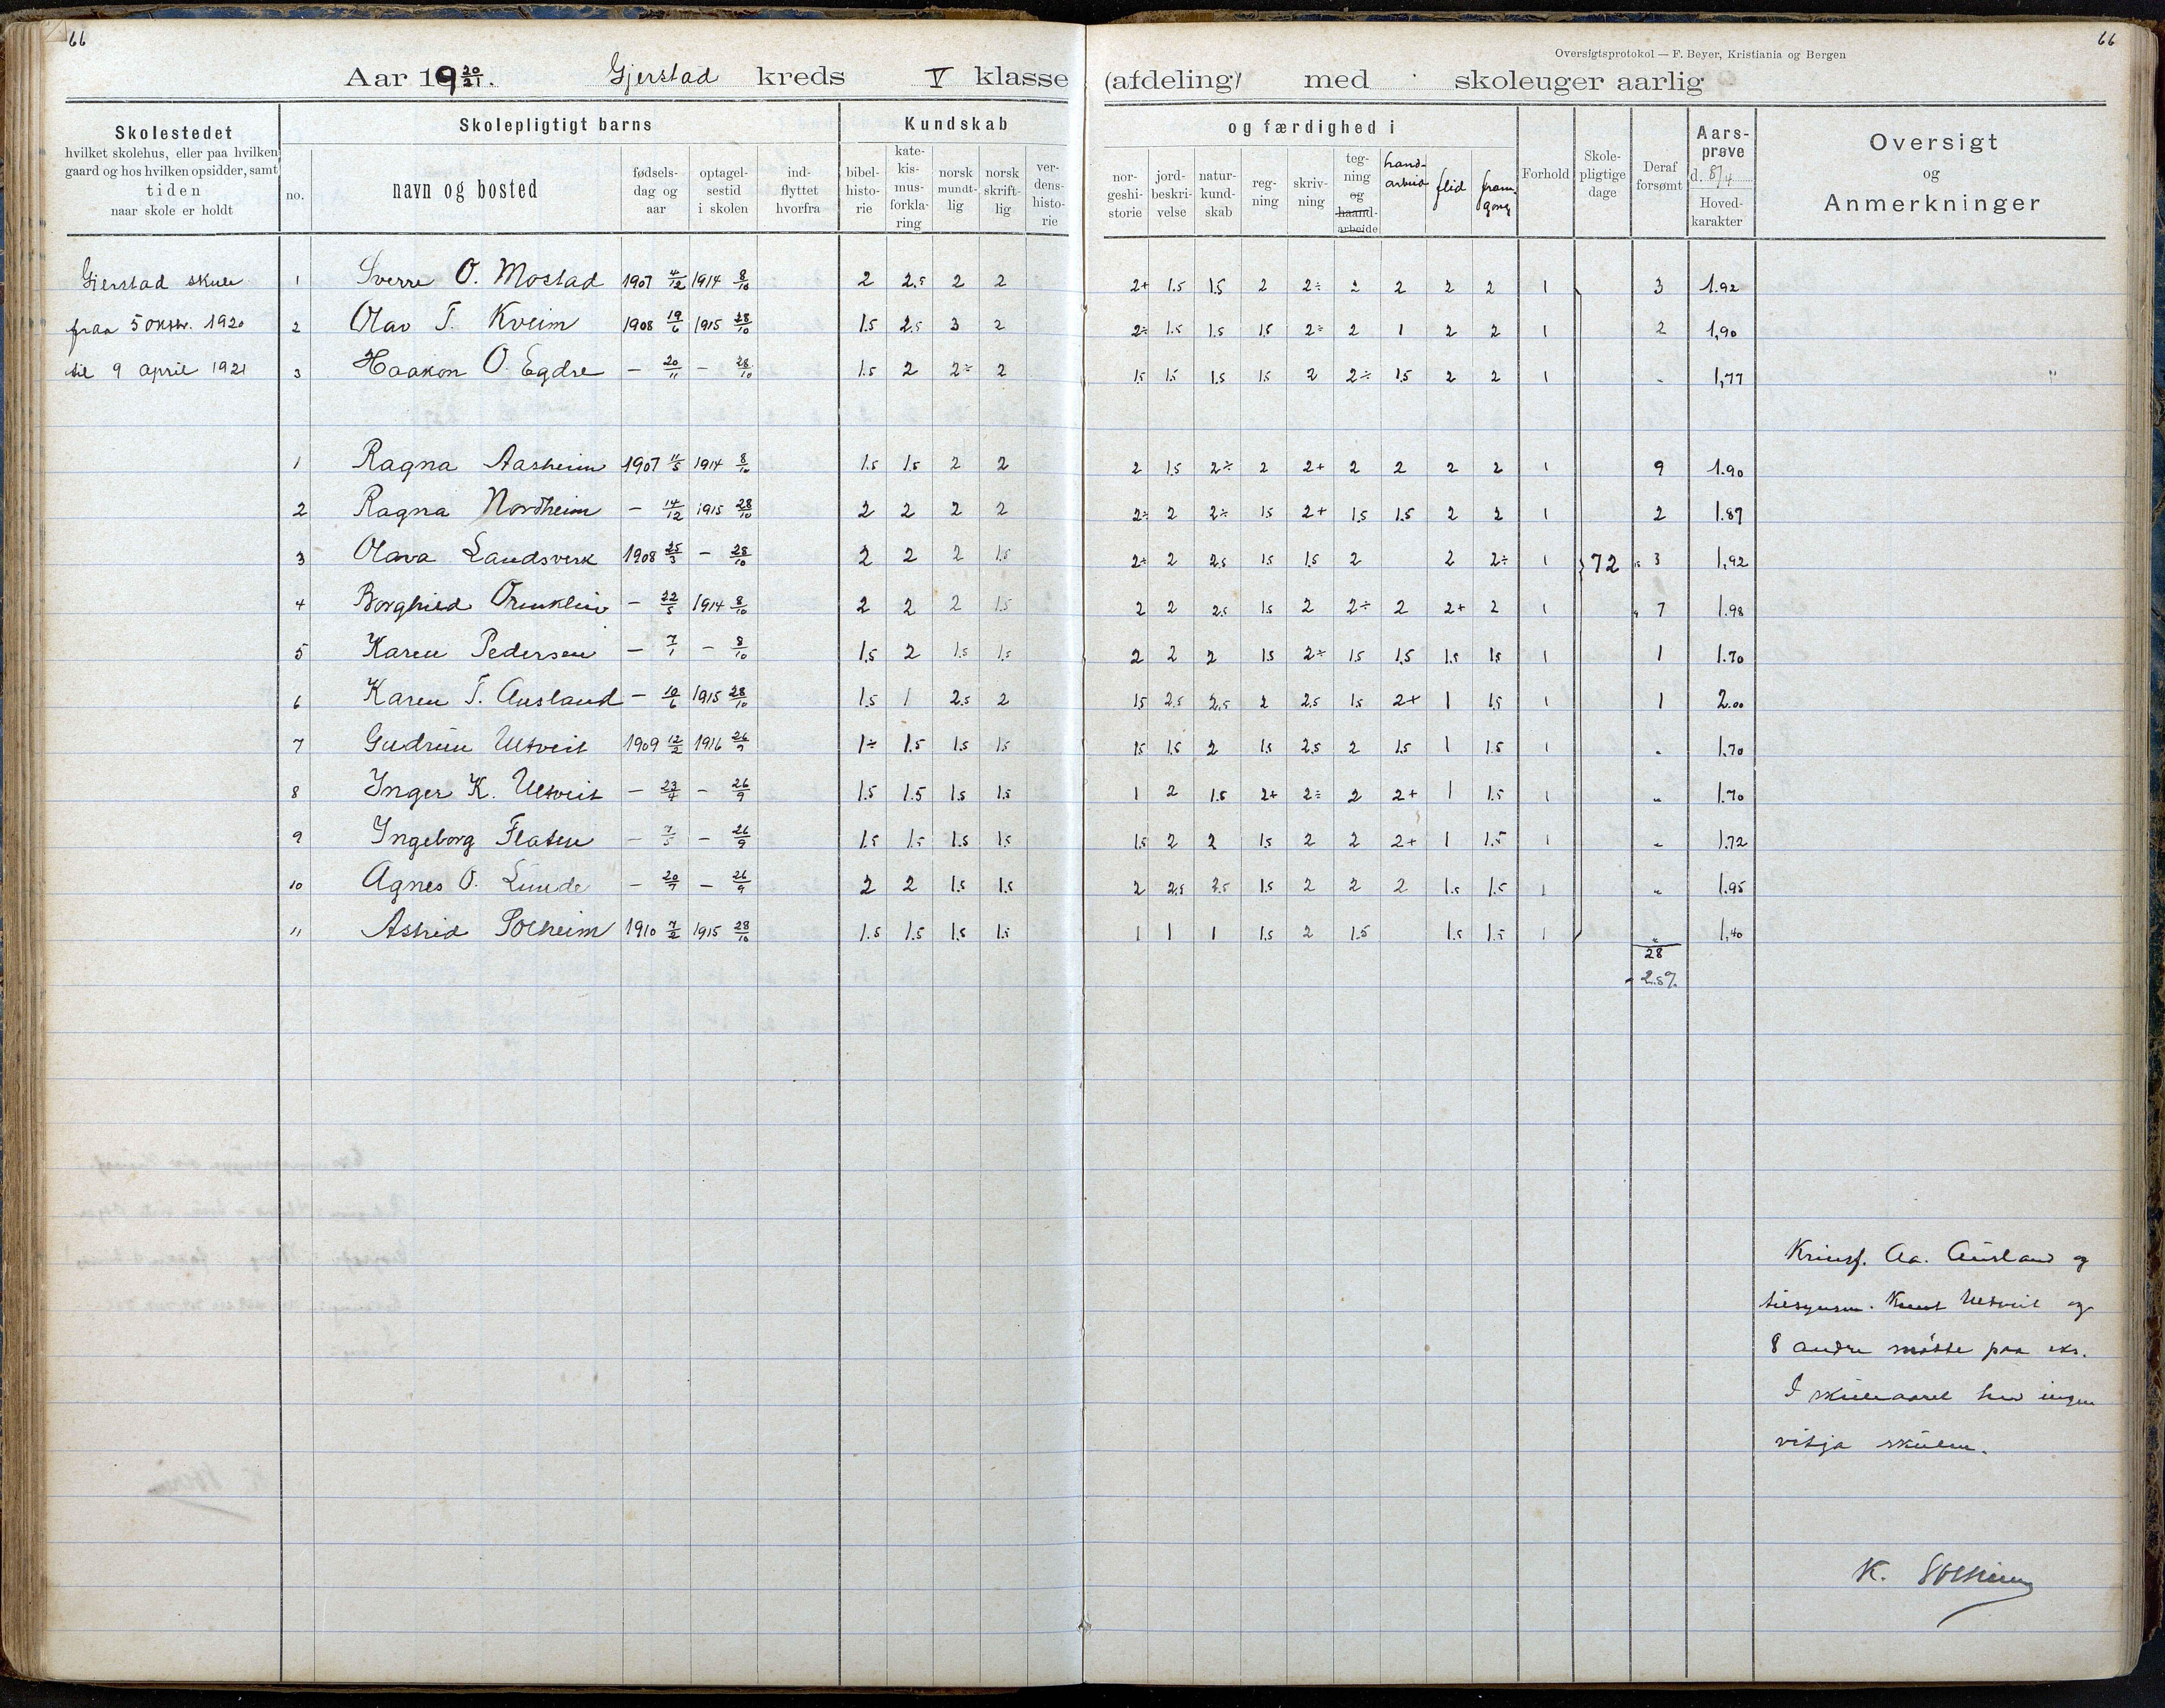 66
66
Oversigtsprotokol — F. Beyer, Kristiania og Bergen
Aar 1920/21. Gjerstad kreds V klasse (afdeling) med skoleuger aarlig
Skolestedet
hvilket skolehus, eller paa hvilken
gaard og hos hvilken opsidder, samt
tiden
naar skole er holdt
Skolepligtigt barns
no.
navn og bosted
fødsels-
dag og
aar
optagel-
sestid
i skolen
ind-
flyttet
hvorfra
Kundskab
bibel-
histo-
rie
kate-
kis-
mus-
forkla-
ring
norsk
mundt-
lig
norsk
skrift-
lig
ver-
dens-
histo-
rie
og færdighed i
nor-
geshi-
storie
jord-
beskri-
velse
natur-
kund-
skab
reg-
ning
skriv-
ning
teg-
ning
og
haand-
arbeide
hand-
arbeid
flid
fram-
gong
Forhold
Skole-
pligtige
dage
Deraf
forsømt
Aars-
prøve
d. 8/4
Hoved-
karakter
Oversigt
og
Anmerkninger
Gjerstad skule 1 Sverre O. Mostad 1907 4/12 1914 8/10 2 2.5 2 2 2+ 1.5 1.5 2 2÷ 2 2 2 2 1 3 1.92
fraa 5 oktbr. 1920 2 Olav T. Kveim 1908 19/6 1915 28/10 1.5 2.5 3 2 2÷ 1.5 1.5 1.5 2÷ 2 1 2 2 1 2 1,90
til 9 april 1921 3 Haakon O. Egdre — 20/11 — 28/10 1.5 2 2÷ 2 1.5 1.5 1.5 1.5 2 2÷ 1.5 2 2 1 „ 1,77
1 Ragna Aasheim 1907 11/5 1914 8/10 1.5 1.5 2 2 2 1.5 2÷ 2 2+ 2 2 2 2 1 9 1.90
2 Ragna Nordheim — 14/12 1915 28/10 2 2 2 2 2÷ 2 2÷ 1.5 2+ 1.5 1.5 2 2 1 2 1.87
3 Olava Landsverk 1908 25/3 — 28/10 2 2 2 1.5 2÷ 2 2.5 1.5 1.5 2 2 2÷ 1 72 3 1,92
4 Borghild Ormklin — 22/5 1914 8/10 2 2 2 1.5 2 2 2.5 1.5 2 2÷ 2 2+ 2 1 7 1.98
5 Karen Pedersen — 7/1 — 8/10 1.5 2 1.5 1.5 2 2 2 1.5 2÷ 1.5 1.5 1.5 1.5 1 1 1.70
6 Karen T. Ausland — 10/6 1915 28/10 1.5 1 2.5 2 1.5 2.5 2.5 2 2.5 1.5 2+ 1 1.5 1 1 2.00
7 Gudrun Ulltveit 1909 12/2 1916 26/9 1÷ 1.5 1.5 1.5 1.5 1.5 2 1.5 2.5 2 1.5 1 1.5 1 „ 1.70
8 Inger K. Ulltveit — 23/4 — 26/9 1.5 1.5 1.5 1.5 1 2 1.5 2+ 2÷ 2 2+ 1 1.5 1 „ 1.70
9 Ingeborg Flaten — 7/5 — 26/9 1.5 1.5 1.5 1.5 1.5 2 2 1.5 2 2 2+ 1 1.5 1 „ 1.72
10 Agnes O. Lunde — 20/7 — 26/9 2 2 1.5 1.5 2 2.5 2.5 1.5 2 2 2 1.5 1.5 1 „ 1.95
11 Astrid Solheim 1910 7/2 1915 28/10 1.5 1.5 1.5 1.5 1 1 1 1.5 2 1.5 1.5 1.5 1 „ 1,40
28
Krinsf. Aa. Ausland og
tilsynsm. Knut Ulltveit og
8 andre møtte paa eks.
I skuleaaret hev ingen
vitja skulen.
K. Solheim